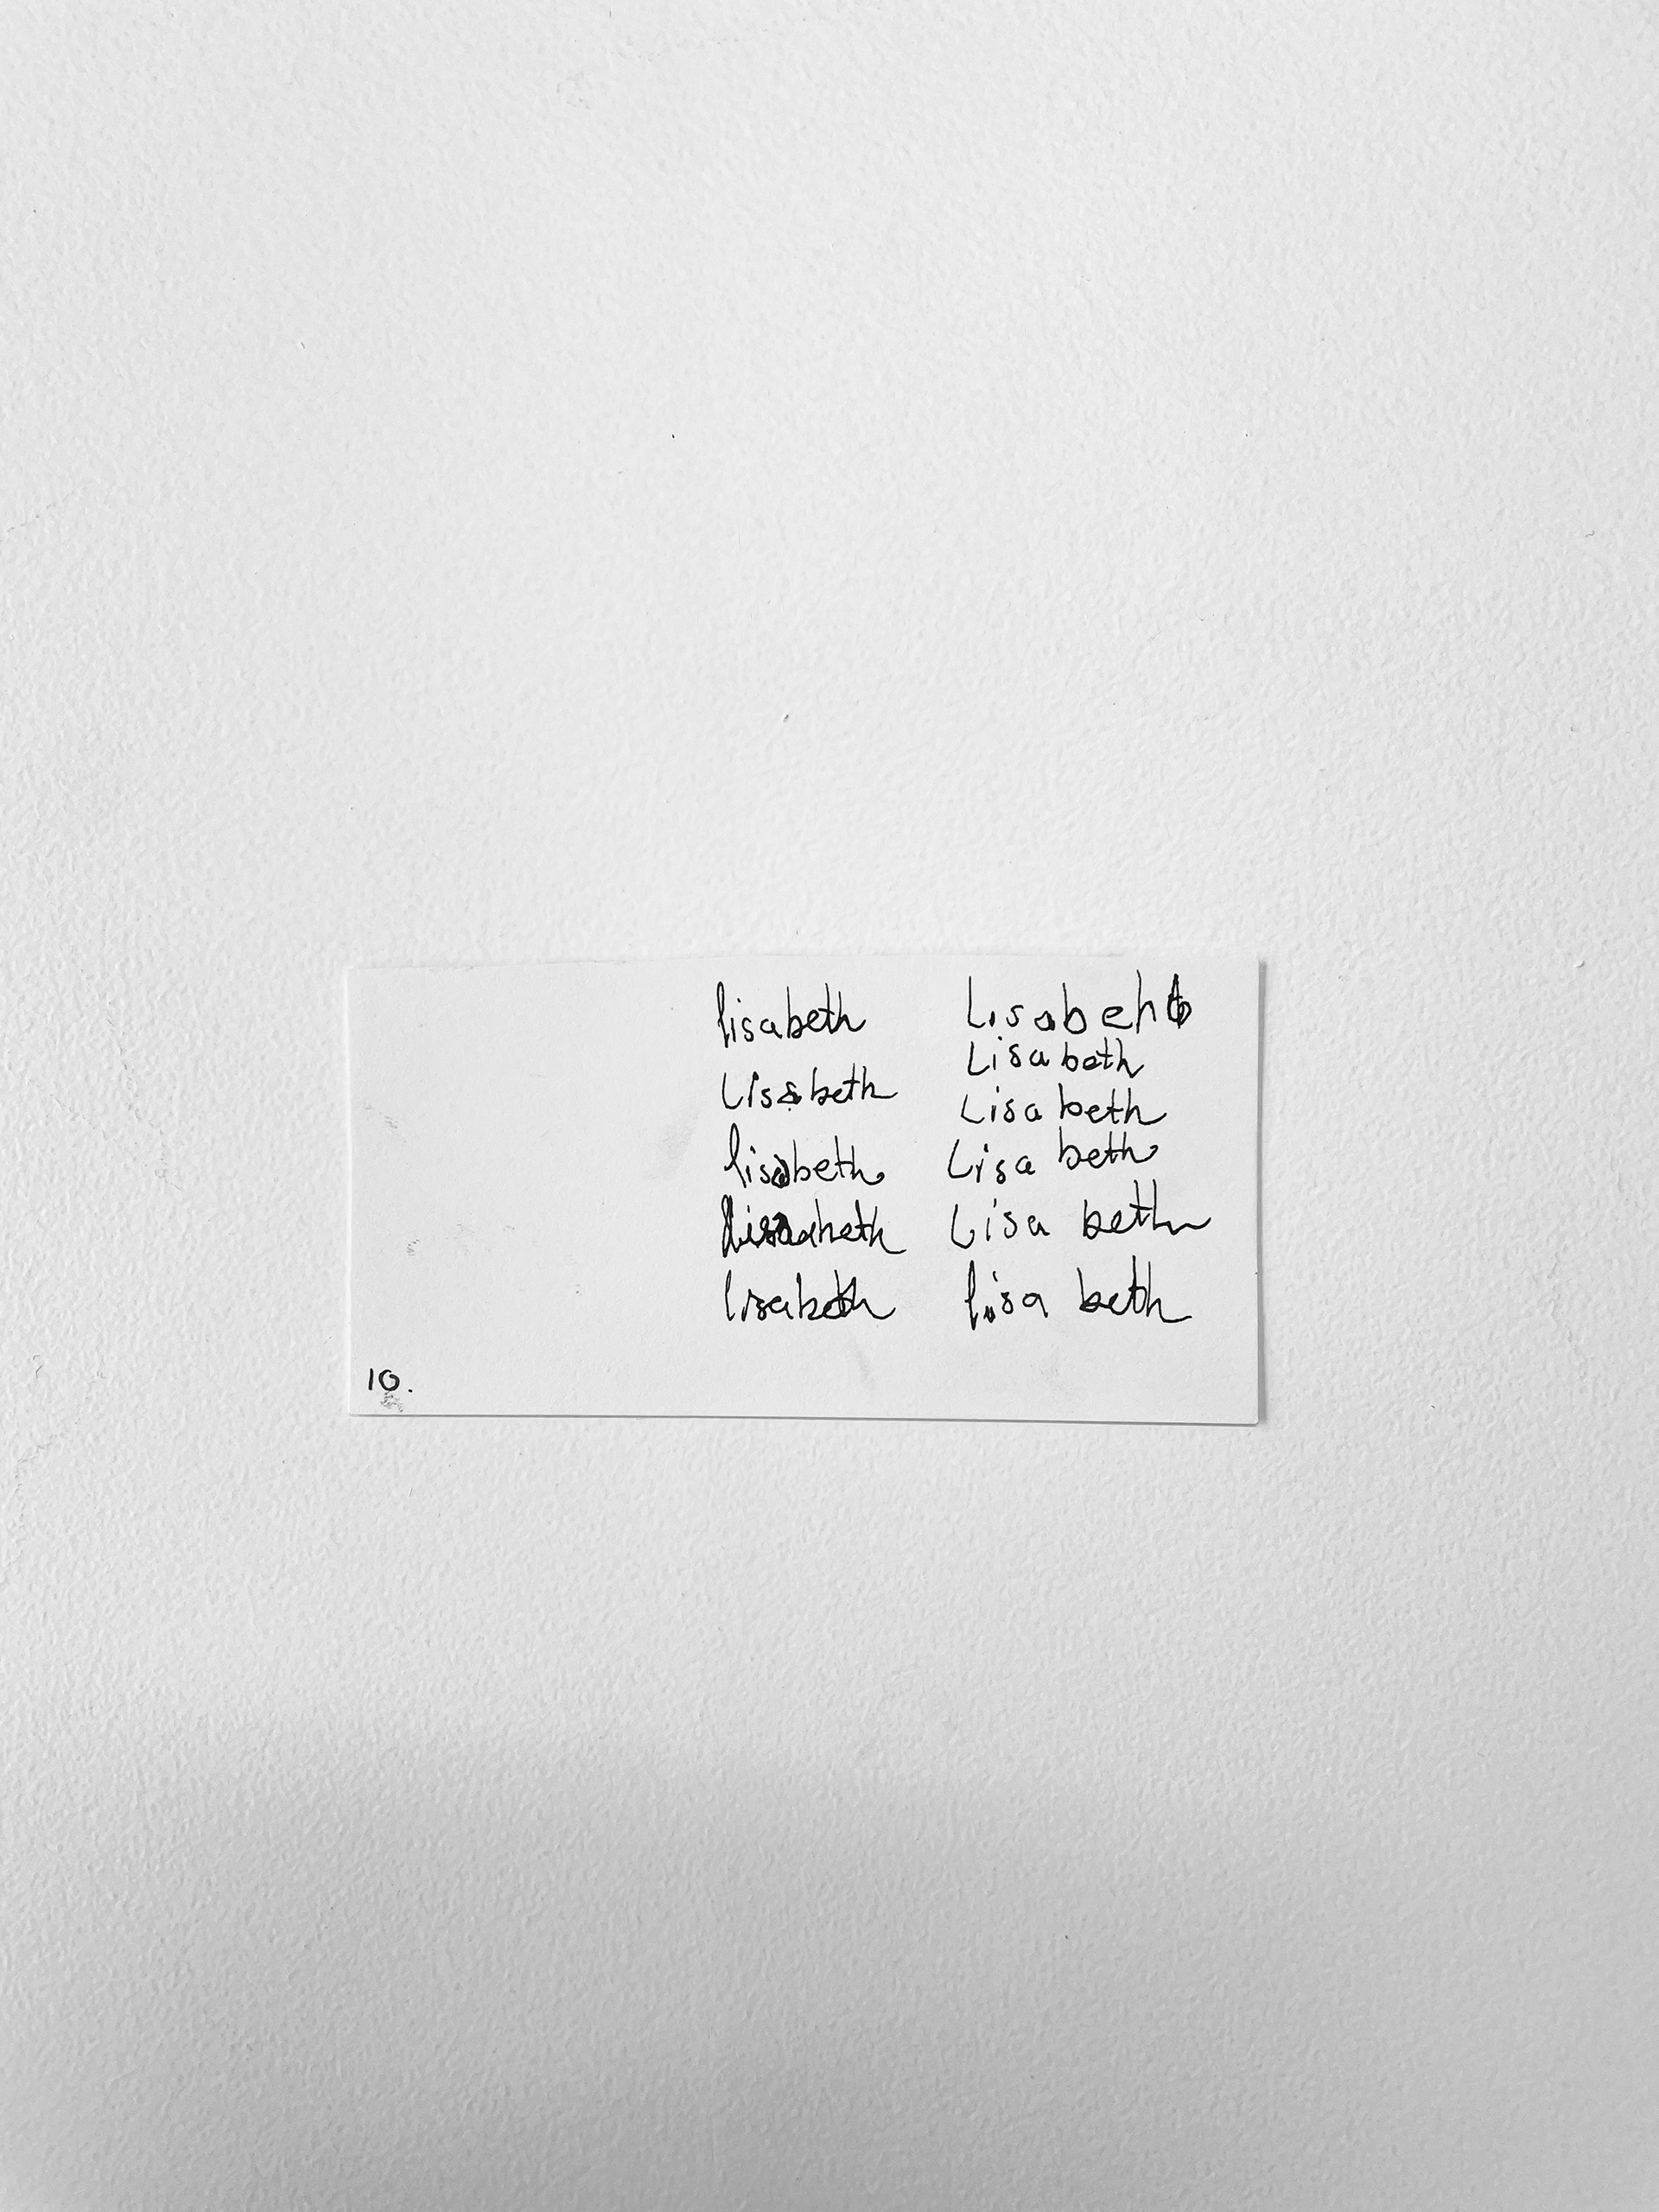 lisabeth
Lisabeth
lisabeth
lisabeth
Lisabeht
Lisabeth
Lisa beth
Lisa beth
Lisa beth
lisa beth
10.